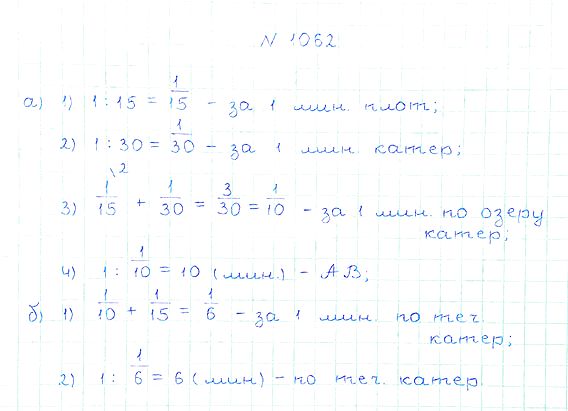 N 1062
а) 1) 1 : 15 = 1/15 - за 1 мин. плот;
2) 1 : 30 = 1/30 - за 1 мин. катер;
3) 1/15 \2 + 1/30 = 3/30 = 1/10 - за 1 мин. по озеру
катер;
4) 1 : 1/10 = 10 (мин.) - АВ;
б) 1) 1/10 + 1/15 = 1/6 - за 1 мин. по теч.
катер;
2) 1 : 1/6 = 6 (мин) - по теч. катер.